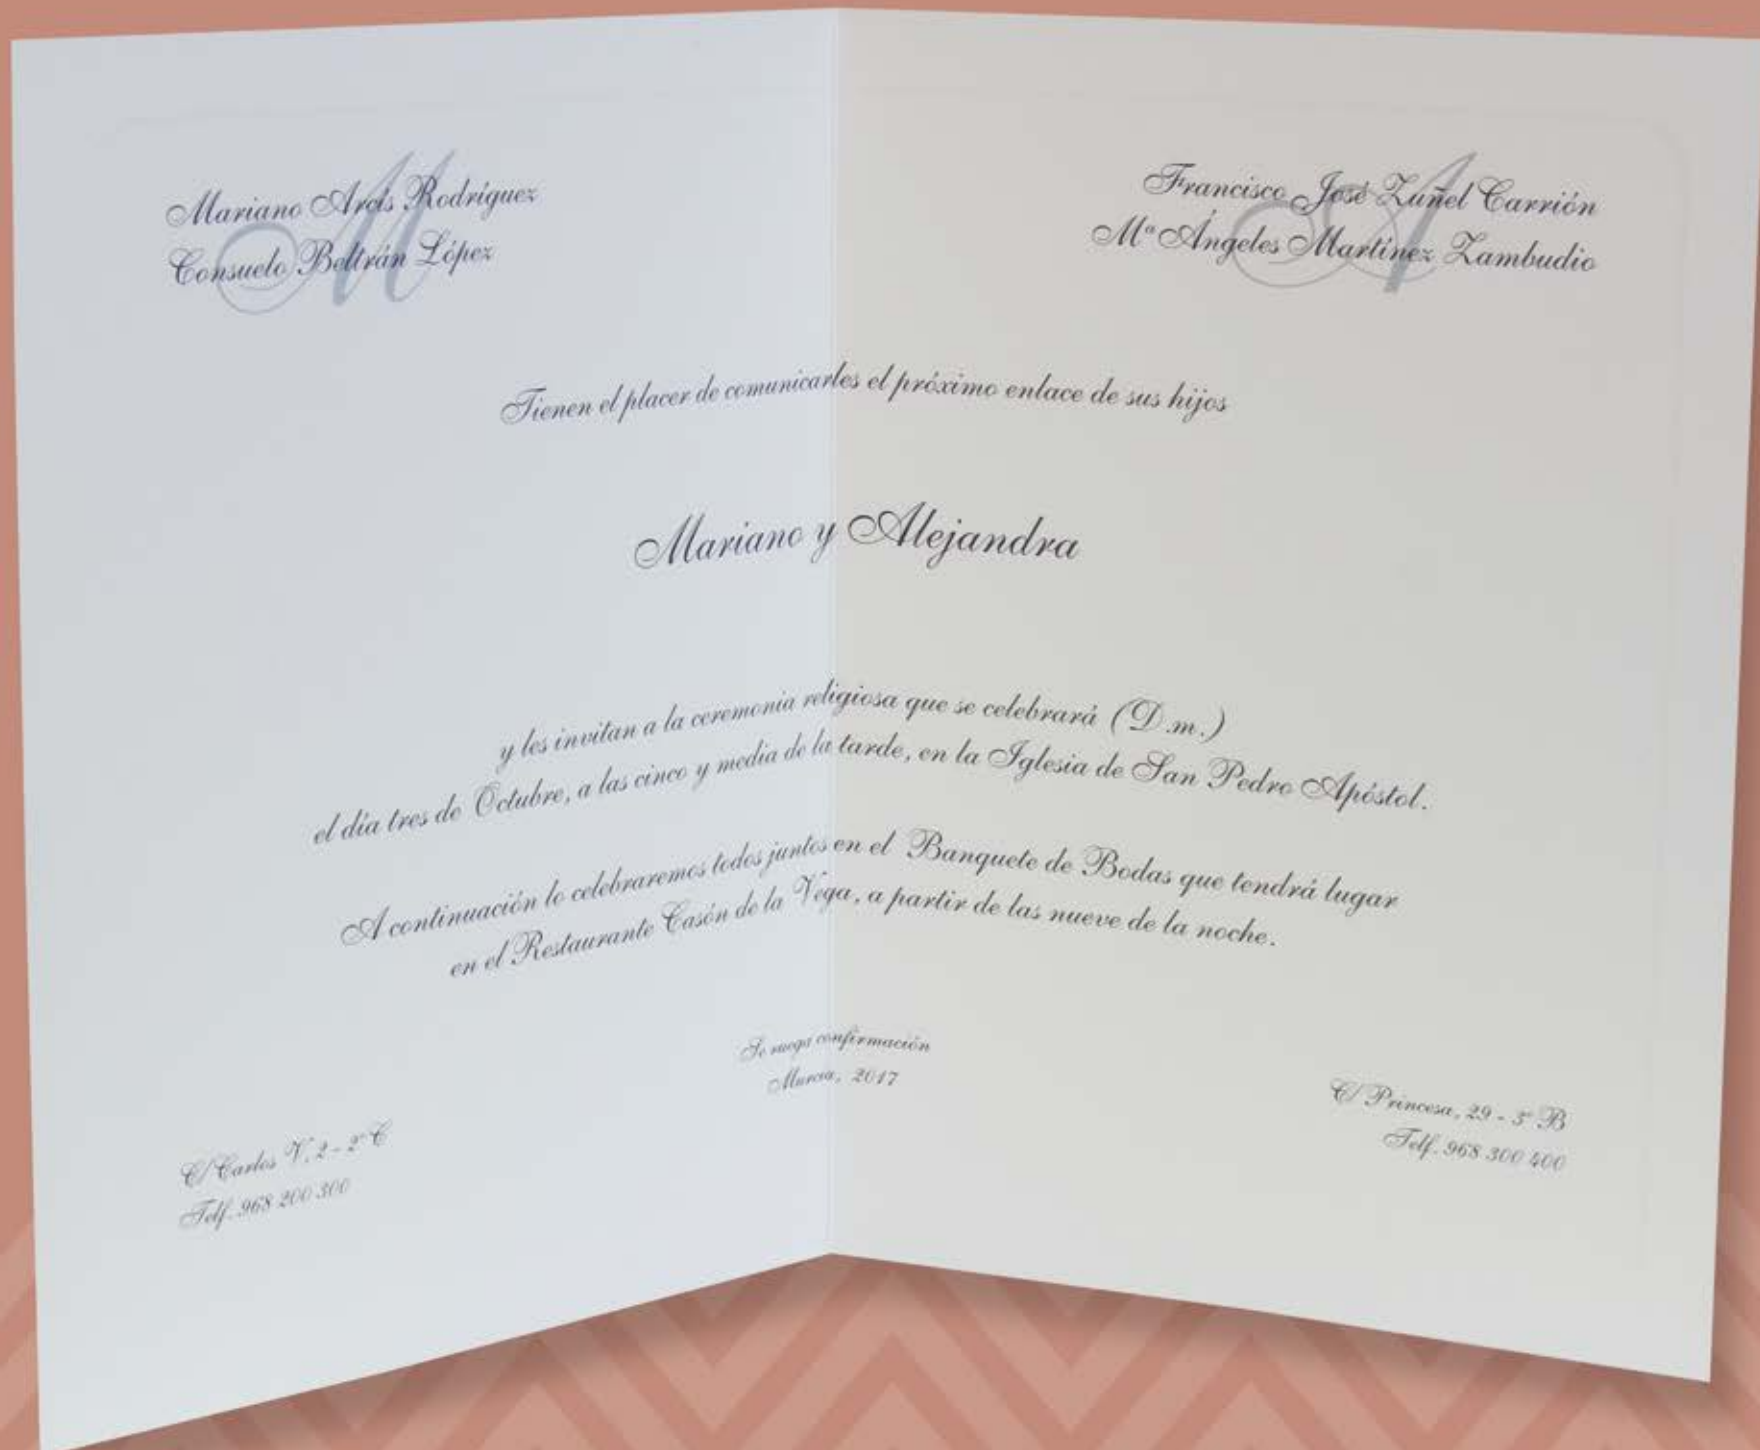 Mariano Arcis Rodríguez
Consuelo Beltrán López
Francisco José Zuñel Carrión
Mª Ángeles Martínez Zambudio
Tienen el placer de comunicarles el próximo enlace de sus hijos
Mariano y Alejandra
y les invitan a la ceremonia religiosa que se celebrará (D.m.)
el día tres de Octubre, a las cinco y media de la tarde, en la Iglesia de San Pedro Apóstol.
A continuación lo celebraremos todos juntos en el Banquete de Bodas que tendrá lugar
en el Restaurante Casón de la Vega, a partir de las nueve de la noche.
Se ruega confirmación
Murcia, 2017
C/ Carlos V, 2 - 2º C
Telf. 968 200 300
C/ Princesa, 29 - B
Telf. 968 300 400